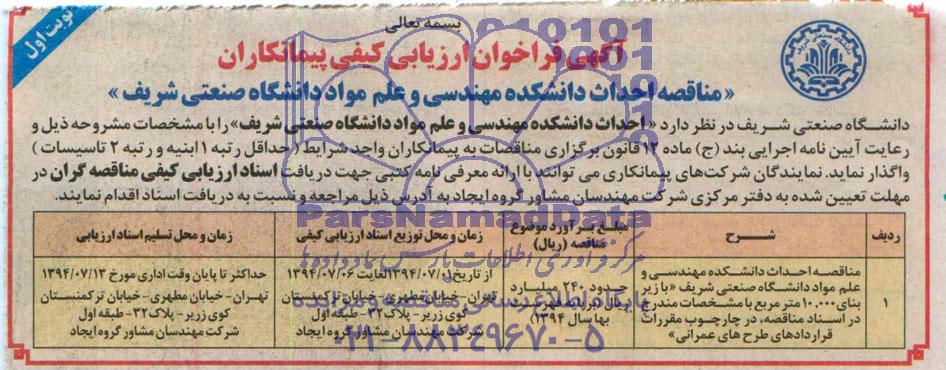 بسمه تعالی
نوبت اول
آگهی فراخوان ارزیابی کیفی پیمانکاران
«مناقصه احداث دانشکده مهندسی و علم مواد دانشگاه صنعتی شریف»
دانشگاه صنعتی شریف در نظر دارد «احداث دانشکده مهندسی و علم مواد دانشگاه صنعتی شریف» را با مشخصات مشروحه ذیل و
رعایت آیین نامه اجرایی بند (ج) ماده ۱۲ قانون برگزاری مناقصات به پیمانکاران واجد شرایط (حداقل رتبه ۱ ابنیه و رتبه ۲ تاسیسات)
واگذار نماید. نمایندگان شرکت‌های پیمانکاری می توانند با ارائه معرفی نامه کتبی جهت دریافت اسناد ارزیابی کیفی مناقصه گران در
مهلت تعیین شده به دفتر مرکزی شرکت مهندسان مشاور گروه ایجاد به آدرس ذیل مراجعه و نسبت به دریافت اسناد اقدام نمایند.
ردیف
شرح
مبلغ برآورد موضوع
مناقصه (ریال)
زمان و محل توزیع اسناد ارزیابی کیفی
زمان و محل تسلیم اسناد ارزیابی
۱
مناقصه احداث دانشکده مهندسی و
علم مواد دانشگاه صنعتی شریف «با زیر
بنای ۱۰،۰۰۰ متر مربع با مشخصات مندرج
در اسناد مناقصه، در چارچوب مقررات
قراردادهای طرح های عمرانی»
حدود ۲۴۰ میلیارد
ریال (بر پایه فهرست
بها سال ۱۳۹۴)
از تاریخ ۱۳۹۴/۰۷/۰۱ لغایت ۱۳۹۴/۰۷/۰۶
تهران- خیابان مطهری- خیابان ترکمنستان
کوی زریر- پلاک ۳۲- طبقه اول
شرکت مهندسان مشاور گروه ایجاد
حداکثر تا پایان وقت اداری مورخ ۱۳۹۴/۰۷/۱۳
تهران- خیابان مطهری- خیابان ترکمنستان
کوی زریر- پلاک ۳۲- طبقه اول
شرکت مهندسان مشاور گروه ایجاد
ParsNamadData
مرکز فرآوری اطلاعات پارس نماد داده ها
پایگاه اطلاع رسانی مناقصه و مزایده
۰۲۱-۸۸۳۴۹۶۷۰-۵